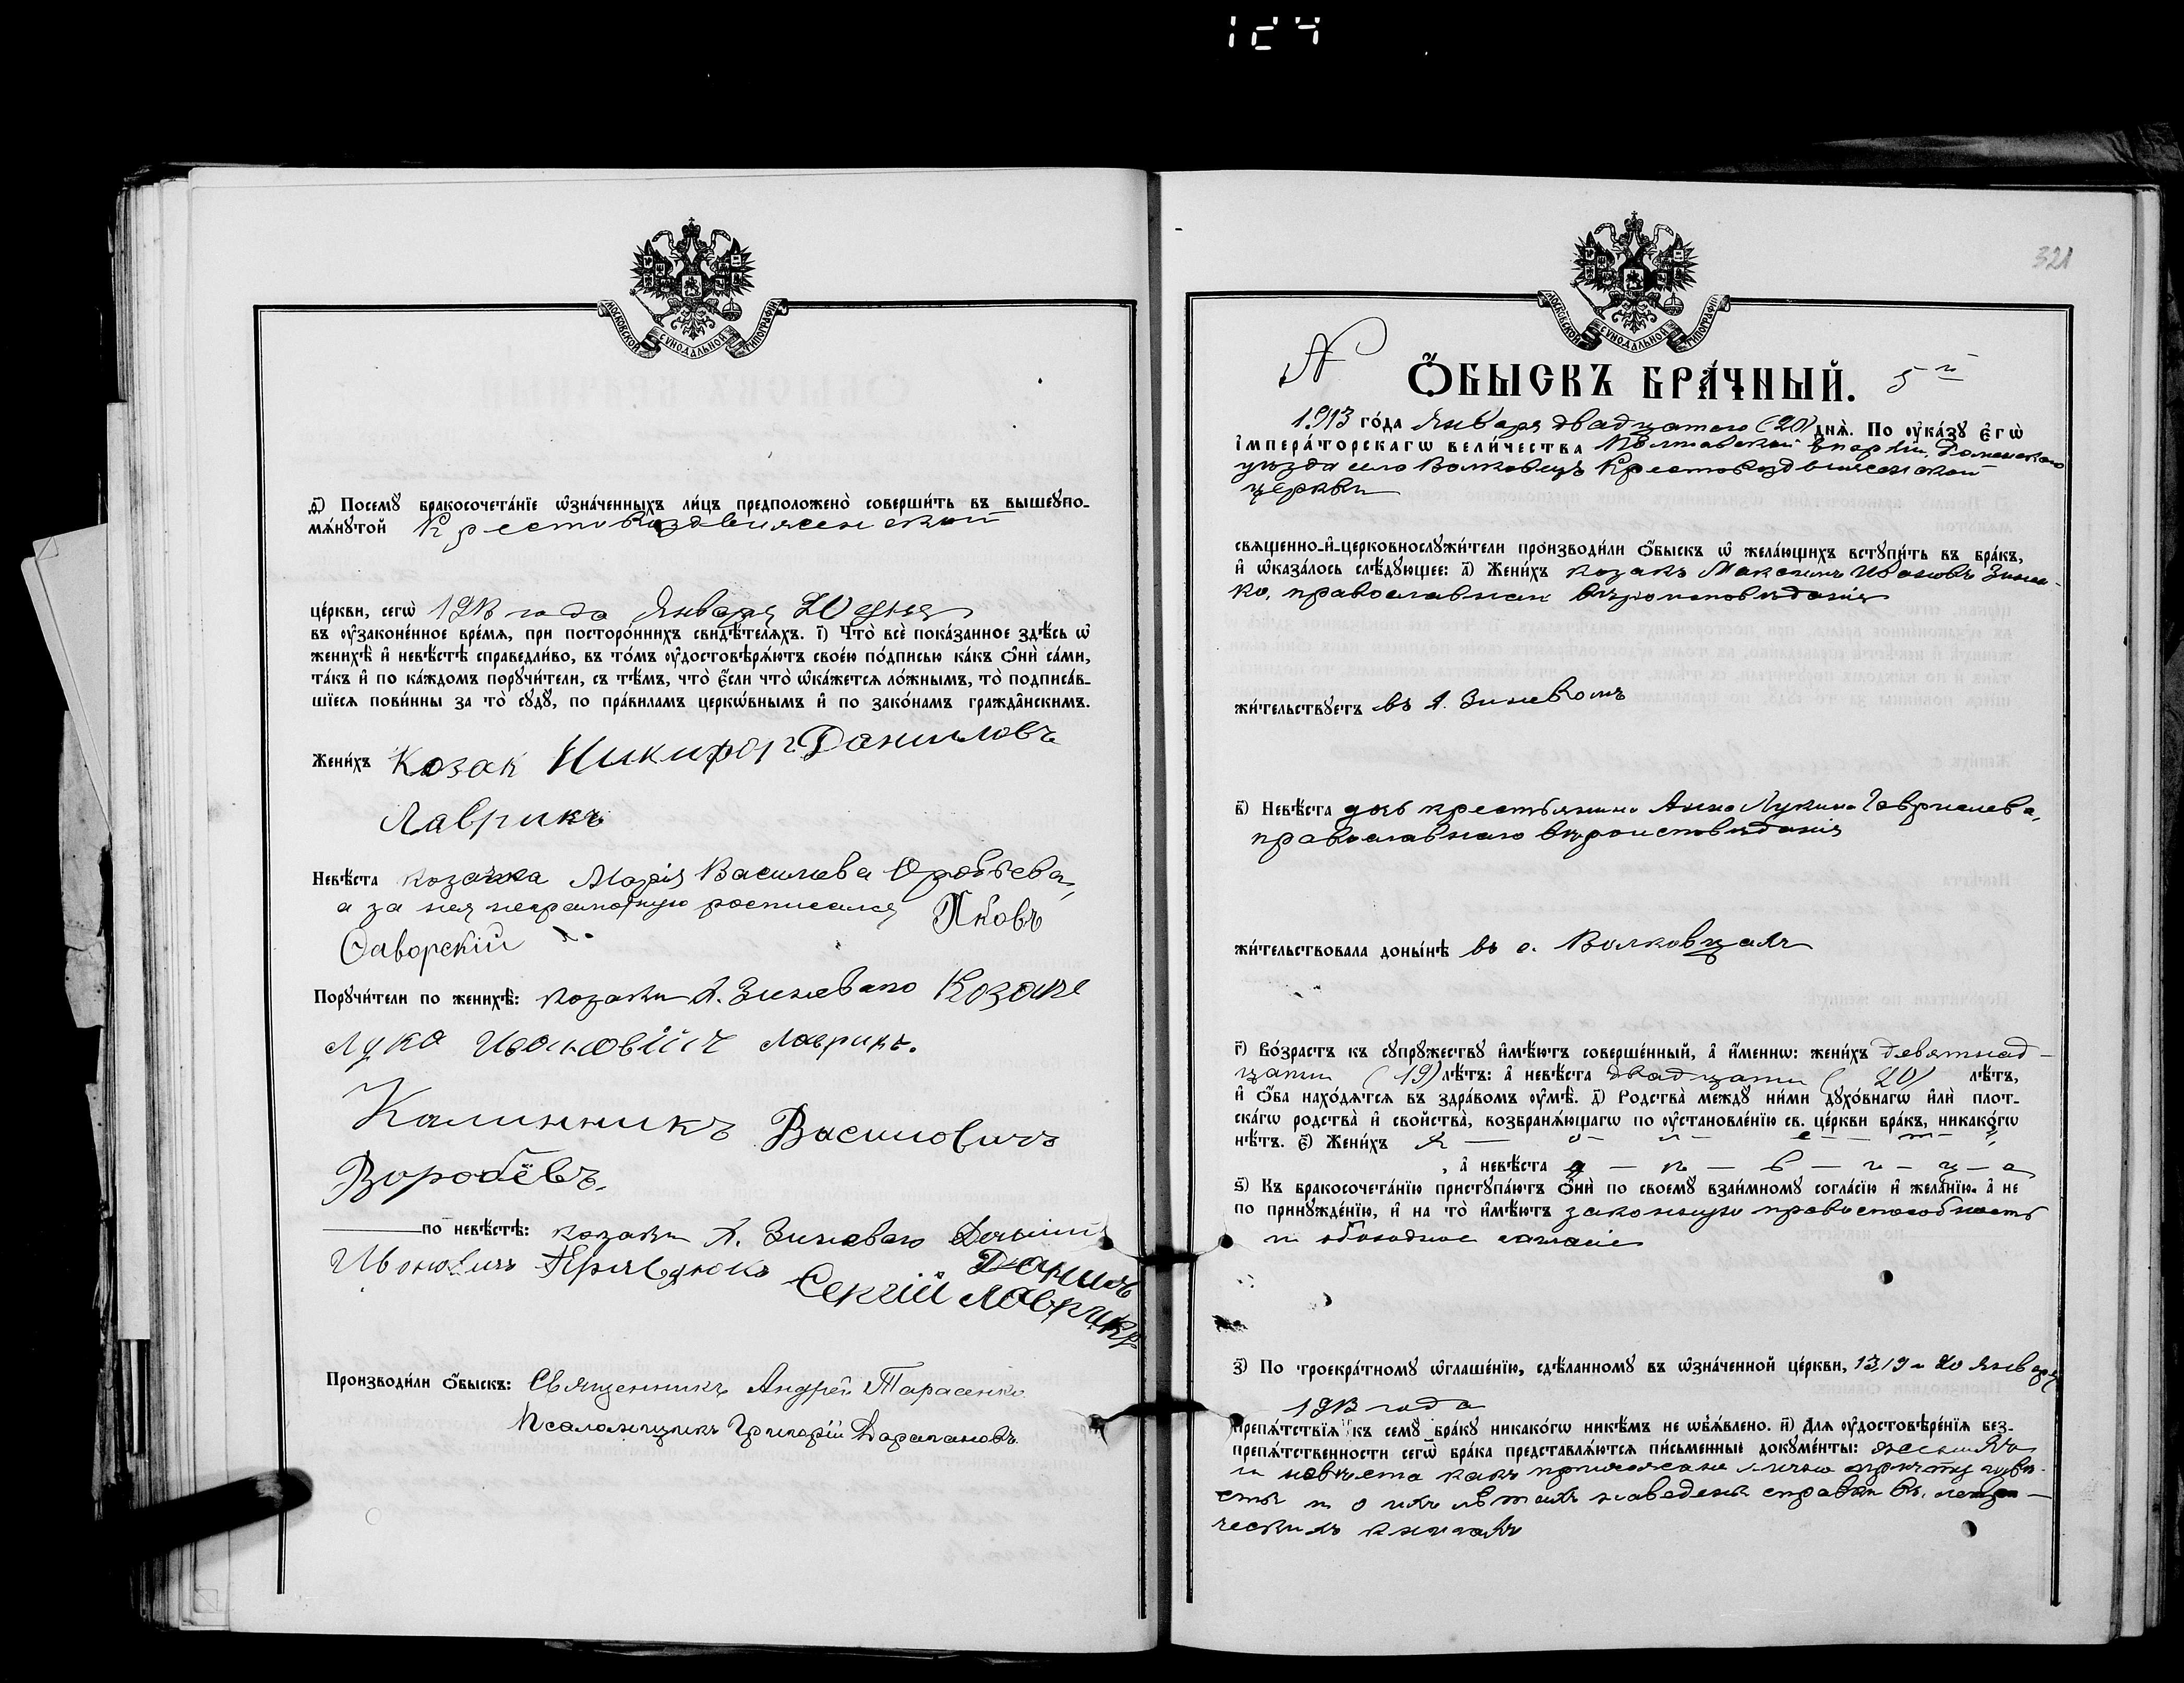 124
МОСКОВСКОЙ СѴНОДАЛЬНОЙ ТИПОГРАФІИ
д҃) Посемꙋ бракосочета́нїе ѡ҆зна́ченныхъ ли́цъ предположено̀ соверши́ть въ вышеꙋпо-
мѧ́нꙋтой Крестовоздвиженской
це́ркви, сегѡ̀ 1913 года Января 20 дня
въ ᲂу҆законе́нное вре́мѧ, при посторо́ннихъ свидѣ́телѧхъ. і҃) Что̀ всѐ пока́занное здѣ́сь ѡ҆
женихѣ̀ и҆ невѣ́стѣ справедли́во, въ то́мъ ᲂу҆достовѣрѧ́ютъ свое́ю по́дписью ка́къ ѻ҆нѝ са́ми,
та́къ и҆ по ка́ждомъ порꙋчи́тели, съ тѣ́мъ, что̀ є҆́сли что̀ ѡ҆ка́жетсѧ ло́жнымъ, то̀ подписа́в-
шїесѧ пови́нны за то̀ сꙋдꙋ̀, по пра́виламъ церкѡ́внымъ и҆ по зако́намъ гражда̂нскимъ.
Жени́хъ Козак Никифор Даниловъ
Лаврикъ
Невѣ́ста козачка Марія Васильева
а за нея неграмотную росписался Яковъ
Ѳаворскій
Порꙋчи́тели по женихѣ̀: козаки х. Зиневаго Козакъ
Лука Ивановичъ Лаврикъ.
Калинникъ Васильевичъ
Воробёвъ.
по невѣ́стѣ: козаки х. Зиневаго
Ивановичъ
Сергій Лаврикъ
Производи́ли ѻ҆́быскъ: Священникъ Андрей Тарасенко
Псаломщикъ Григорій
321
МОСКОВСКОЙ СѴНОДАЛЬНОЙ ТИПОГРАФІИ
N Ѻ҆́БЫСКЪ БРА́ЧНЫЙ. 5й
1913 го́да Января двадцатаго (20) днѧ̀. По ᲂу҆ка́зꙋ Є҆гѡ̀
І҆мпера́торскагѡ вели́чества Полтавской Епархіи, Роменскаго
уѣзда села Волковецъ Крестовоздвиженской
церкви
свѧщенно-и҆-церковнослꙋжи́тели производи́ли ѻ҆́быскъ ѡ҆ жела́ющихъ встꙋпи́ть въ бра́къ,
и҆ ѡ҆каза́лось слѣ́дꙋющее: а҃) Жени́хъ козакъ Максимъ Ивановъ Зинен-
ко, православнаго вѣроисповѣданія
жи́тельствꙋетъ въ х. Зиневомъ
в҃) Невѣ́ста дочь крестьянина Анна Лукина Гавриленва,
православнаго вѣроисповѣданія
жи́тельствовала доны́нѣ въ с. Волковцахъ
г҃) Во́зрастъ къ сꙋпрꙋ́жествꙋ и҆мѣ́ютъ соверше́нный, а҆ и҆́меннѡ: жени́хъ девятнад-
цати (19) лѣ́тъ: а҆ невѣ́ста двадцати (20) лѣ́тъ,
и҆ ѻ҆́ба нахо́дѧтсѧ въ здра́вомъ ᲂу҆мѣ̀. д҃) Родства̀ междꙋ̀ ни́ми дꙋхо́внагѡ и҆лѝ плот-
ска́гѡ родства̀ и҆ сво́йства̀, возбранѧ́ющагѡ по ᲂу҆становле́нїю св. це́ркви бра́къ, никако́гѡ
нѣ́тъ. є҃) Жени́хъ х — о — л — о — с — т — ъ
, а҆ невѣ́ста д — ѣ — в — и — ц — а
ѕ҃) Къ бракосочета́нїю пристꙋпа́ютъ ѻ҆нѝ по своемꙋ̀ взаи́мномꙋ согла́сїю и҆ жела́нїю, а҆ не
по принꙋжде́нїю, и҆ на то̀ и҆мѣ́ютъ законную правоспособность
и обоюдное согласіе
з҃) По троекра́тномꙋ ѡ҆глаше́нїю, сдѣ́ланномꙋ въ ѡ҆зна́ченной це́ркви, 13, 19 и 20 Января
1913 года
препѧ́тствїѧ къ семꙋ̀ бра́кꙋ никако́гѡ никѣ́мъ не ѡ҆б̾ѧ́влено. и҃) Длѧ ᲂу҆достовѣре́нїѧ без-
препѧ́тственности сегѡ̀ бра́ка представлѧ́ютсѧ пи́сьменные докꙋме́нты: женихъ
и невѣста какъ прихожане лично причту извѣ-
стны и о ихъ лѣтахъ наведены справки въ метри-
ческихъ книгахъ